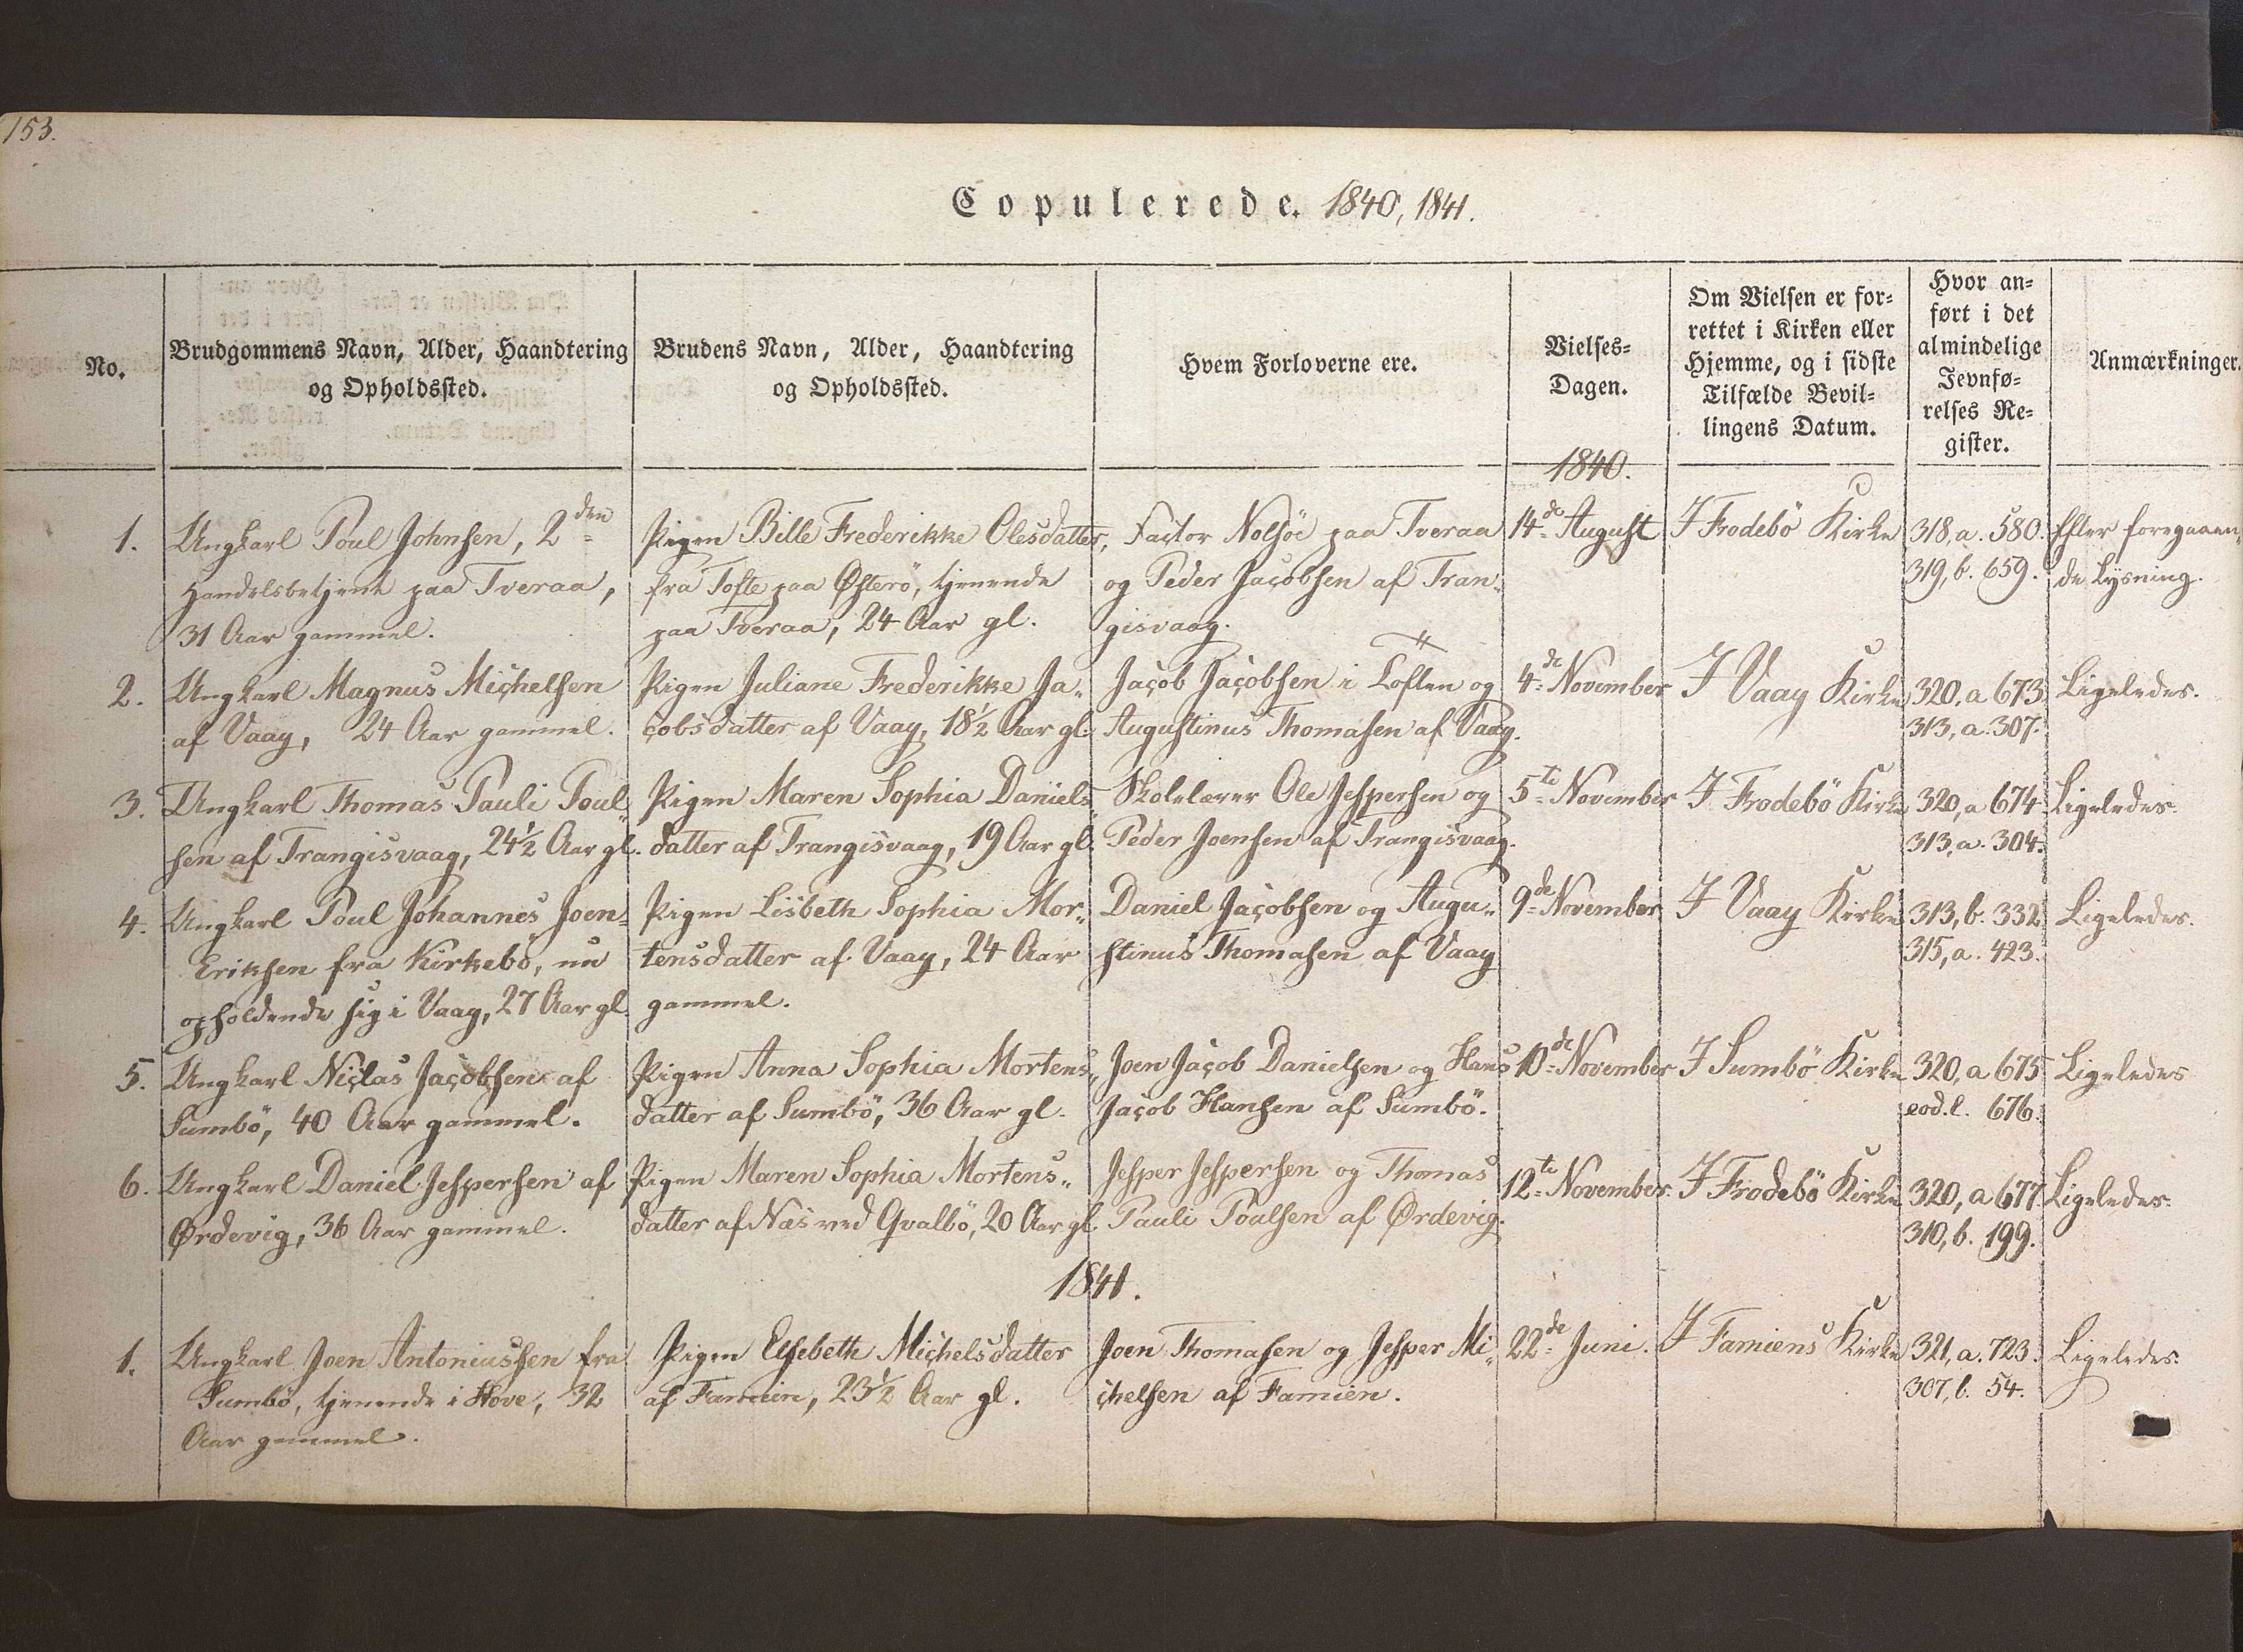 153.
Copulerede. 1840, 1841.
No.
Brudgommens Navn, Alder, Haandtering
og Opholdssted.
Brudens Navn, Alder, Haandtering
og Opholdssted.
Hvem Forloverne ere.
Vielses-
Dagen.
Om Vielsen er for-
rettet i Kirken eller
Hjemme, og i sidste
Tilfælde Bevil-
lingens Datum.
Hvor an-
ført i det
almindelige
Jevnfø-
relses Re-
gister.
Anmærkninger.
1840.
1.
Ungkarl Poul Johnsen, 2den
Handelsbetjent paa Tveraa,
31 Aar gammel.
Pigen Bille Frederikke Olesdatter,
fra Tofte paa Østerö, tjenende
paa Tveraa, 24 Aar gl.
Factor Nolsöe paa Tveraa
og Peder Jacobsen af Tran-
gisvaag.
14de August
I Frodebö Kirke
318, a. 580.
319, b. 659.
Efter foregaaen-
de Lysning.
2.
Ungkarl Magnus Michelsen
af Vaag, 24 Aar gammel.
Pigen Juliane Frederikke Ja-
cobsdatter af Vaag, 18½ Aar gl.
Jacob Jacobsen i Loften og
Augustinus Thomasen af Vaag.
4de November
I Vaag Kirke
320, a 673.
313, a. 307.
Ligeledes.
3.
Ungkarl Thomas Pauli Poul-
sen af Trangisvaag, 24½ Aar gl.
Pigen Maren Sophia Daniels-
datter af Trangisvaag, 19 Aar gl.
Skolelærer Ole Jespersen og
Peder Joensen af Trangisvaag.
5te November
I Frodebö Kirke
320, a 674.
313, a. 304.
Ligeledes.
4.
Ungkarl Poul Johannes Joen-
Eriksen fra Kirkebö, nu
opholdende sig i Vaag, 27 Aar gl.
Pigen Lisbeth Sophia Mor-
tensdatter af Vaag, 24 Aar
gammel.
Daniel Jacobsen og Augu-
stinus Thomasen af Vaag
9de November
I Vaag Kirke
313, b. 332.
315, a. 423.
Ligeledes.
5.
Ungkarl Niclas Jacobsen af
Sumbö, 40 Aar gammel.
Pigen Anna Sophia Mortens-
datter af Sumbö, 36 Aar gl.
Joen Jacob Danielsen og Hans
Jacob Hansen af Sumbö.
10de November
I Sumbö Kirke
320, a 675
eod. l. 676.
Ligeledes
6.
Ungkarl Daniel Jespersen af
Ørdevig, 36 Aar gammel.
Pigen Maren Sophia Mortens-
datter af Næs ved Qvalbö, 20 Aar gl.
Jesper Jespersen og Thomas
Pauli Poulsen af Ørdevig.
12te November.
I Frodebö Kirke
320, a 677.
310, b. 199.
Ligeledes.
1841.
1.
Ungkarl Joen Antoniussen fra
Sumbö, tjenende i Hove, 32
Aar gammel.
Pigen Elsebeth Michelsdatter
af Famien, 23½ Aar gl.
Joen Thomasen og Jesper Mi-
chelsen af Famien.
22de Juni.
I Famiens Kirke
321, a. 723.
307, b. 54.
Ligeledes.